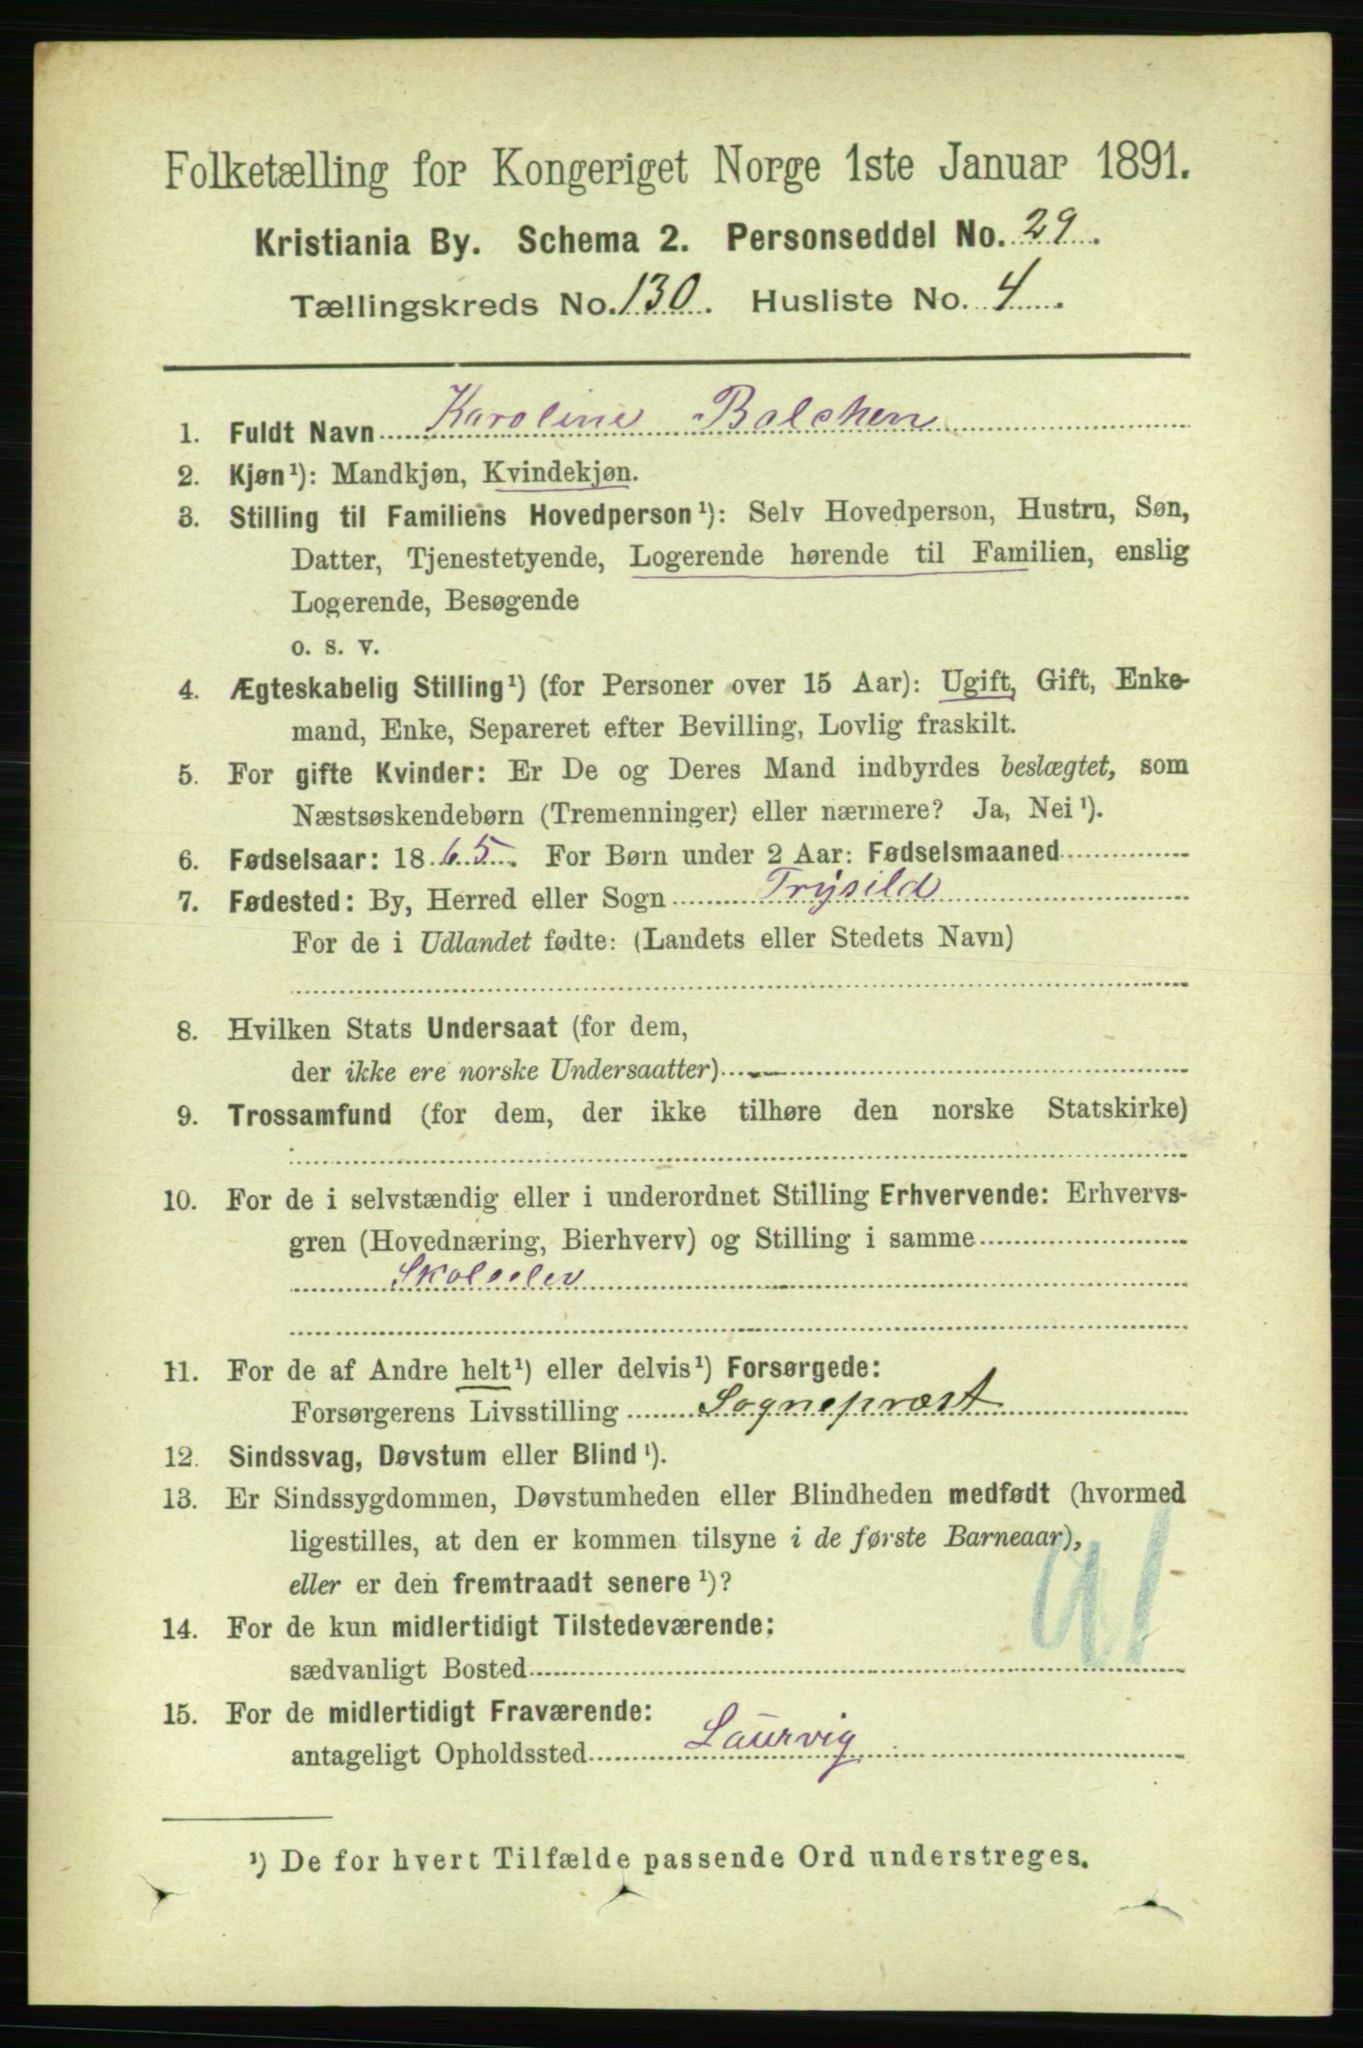 Folketælling for Kongeriget Norge 1ste Januar 1891.
Kristiania By. Schema 2. Personseddel No. 29.
Tællingskreds No. 130. Husliste No. 4.
1. Fuldt Navn Karoline Balchen
2. Kjøn¹): Mandkjøn, Kvindekjøn.
3. Stilling til Familiens Hovedperson¹): Selv Hovedperson, Hustru, Søn,
Datter, Tjenestetyende, Logerende hørende til Familien, enslig
Logerende, Besøgende
o. s. v.
4. Ægteskabelig Stilling¹) (for Personer over 15 Aar): Ugift, Gift, Enke-
mand, Enke, Separeret efter Bevilling, Lovlig fraskilt.
5. For gifte Kvinder: Er De og Deres Mand indbyrdes beslægtet, som
Næstsøskendebørn (Tremenninger) eller nærmere? Ja, Nei¹).
6. Fødselsaar: 1865. For Børn under 2 Aar: Fødselsmaaned
7. Fødested: By, Herred eller Sogn Trysild
For de i Udlandet fødte: (Landets eller Stedets Navn)
8. Hvilken Stats Undersaat (for dem,
der ikke ere norske Undersaatter)
9. Trossamfund (for dem, der ikke tilhøre den norske Statskirke)
10. For de i selvstændig eller i underordnet Stilling Erhvervende: Erhvervs-
gren (Hovednæring, Bierhverv) og Stilling i samme
Skoleelev
11. For de af Andre helt¹) eller delvis¹) Forsørgede:
Forsørgerens Livsstilling Sognepræst
12. Sindssvag, Døvstum eller Blind¹).
13. Er Sindssygdommen, Døvstumheden eller Blindheden medfødt (hvormed
ligestilles, at den er kommen tilsyne i de første Barneaar),
eller er den fremtraadt senere¹)?
91
14. For de kun midlertidigt Tilstedeværende:
sædvanligt Bosted
15. For de midlertidigt Fraværende:
antageligt Opholdssted Laurvig
¹) De for hvert Tilfælde passende Ord understreges.